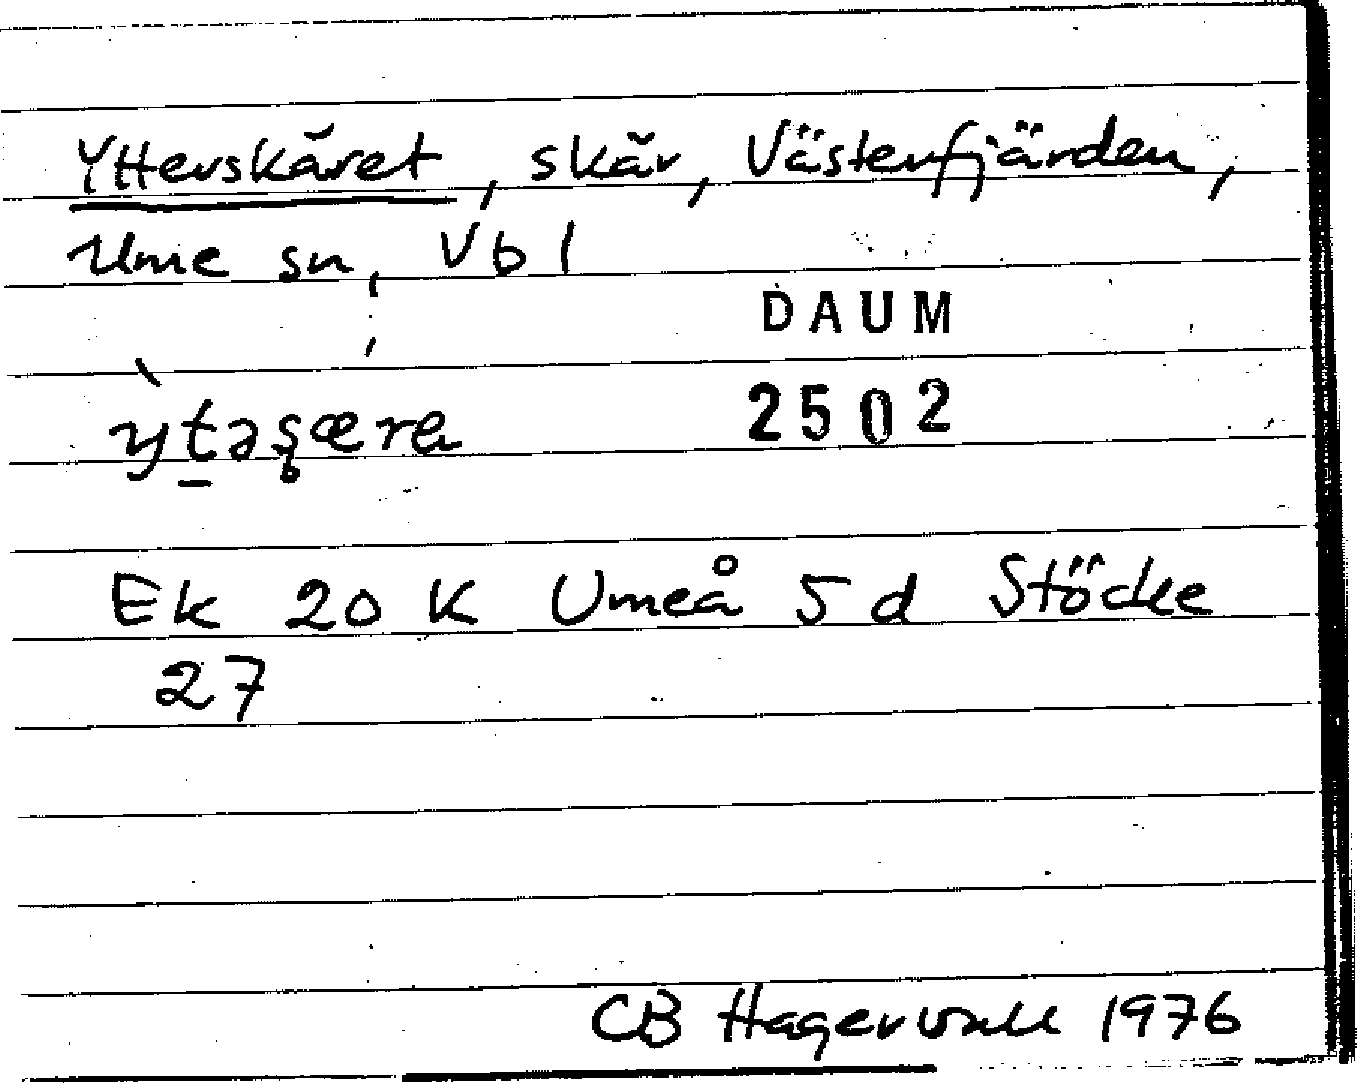 Ytterskäret, skär, Västerfjärden,
Ume sn, Vbl
DAUM
ỳt̠əşæra
2502
Ek 20 K Umeå 5 d Stöcke
27
CB Hagervall 1976